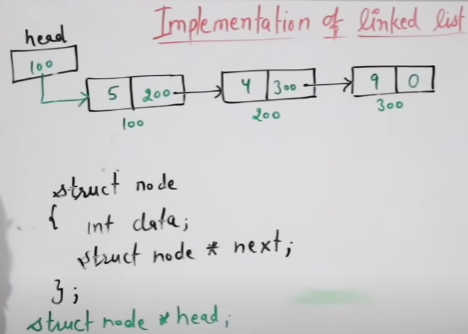 Implementation of linked list
head
100
5 200 4 300 9 0
100 200 300
struct node
{ int data;
struct node * next;
};
struct node * head;